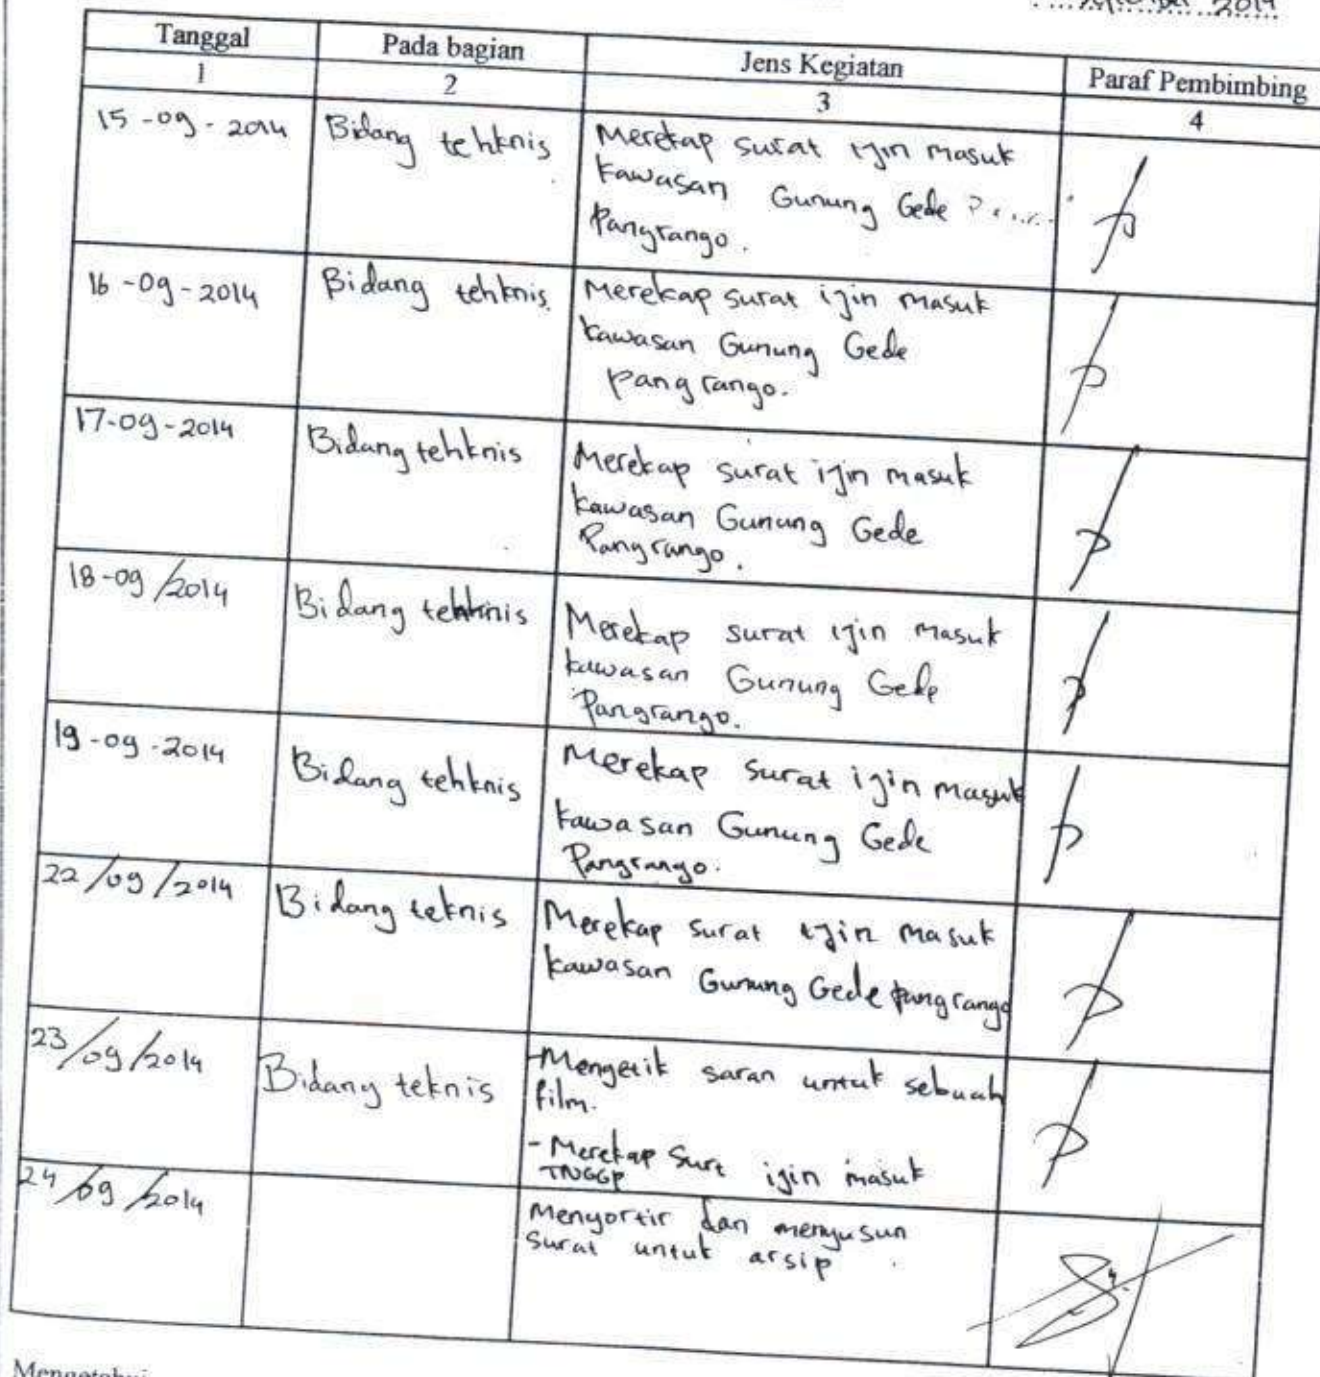 September 2014
Tanggal Pada bagian Jens Kegiatan Paraf Pembimbing
1 2 3 4
15-09-2014 Bidang tehknis Merekap surat ijin masuk
kawasan Gunung Gede ?......
Pangrango.
16-09-2014 Bidang tehknis Merekap surat ijin masuk
kawasan Gunung Gede
pangrango.
17-09-2014 Bidang tehknis Merekap surat ijin masuk
kawasan Gunung Gede
Pangrango.
18-09/2014 Bidang tehknis Merekap surat ijin masuk
kawasan Gunung Gede
Pangrango.
19-09-2014 Bidang tehknis Merekap surat ijin masuk
kawasan Gunung Gede
Pangrango.
22/09/2014 Bidang teknis Merekap surat ijin masuk
kawasan Gunung Gede pangrango
23/09/2014 Bidang teknis -Mengetik saran untuk sebuah
film.
- Merekap Surt ijin masuk
TNGGP
24/09/2014 Menyortir dan menyusun
surat untuk arsip
Mengetahui